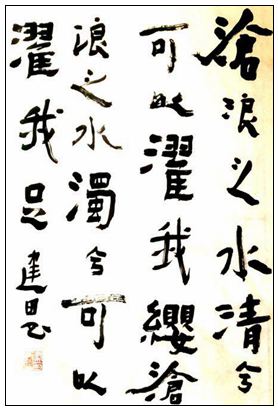 滄浪之水清兮
可以濯我纓滄
浪之水濁兮可以
濯我足